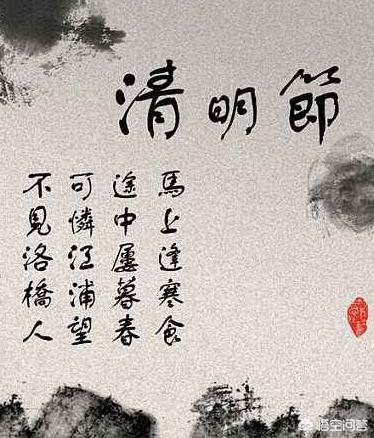 清明節
馬上逢寒食
途中屢暮春
可憐江浦望
不見洛橋人
悟空问答